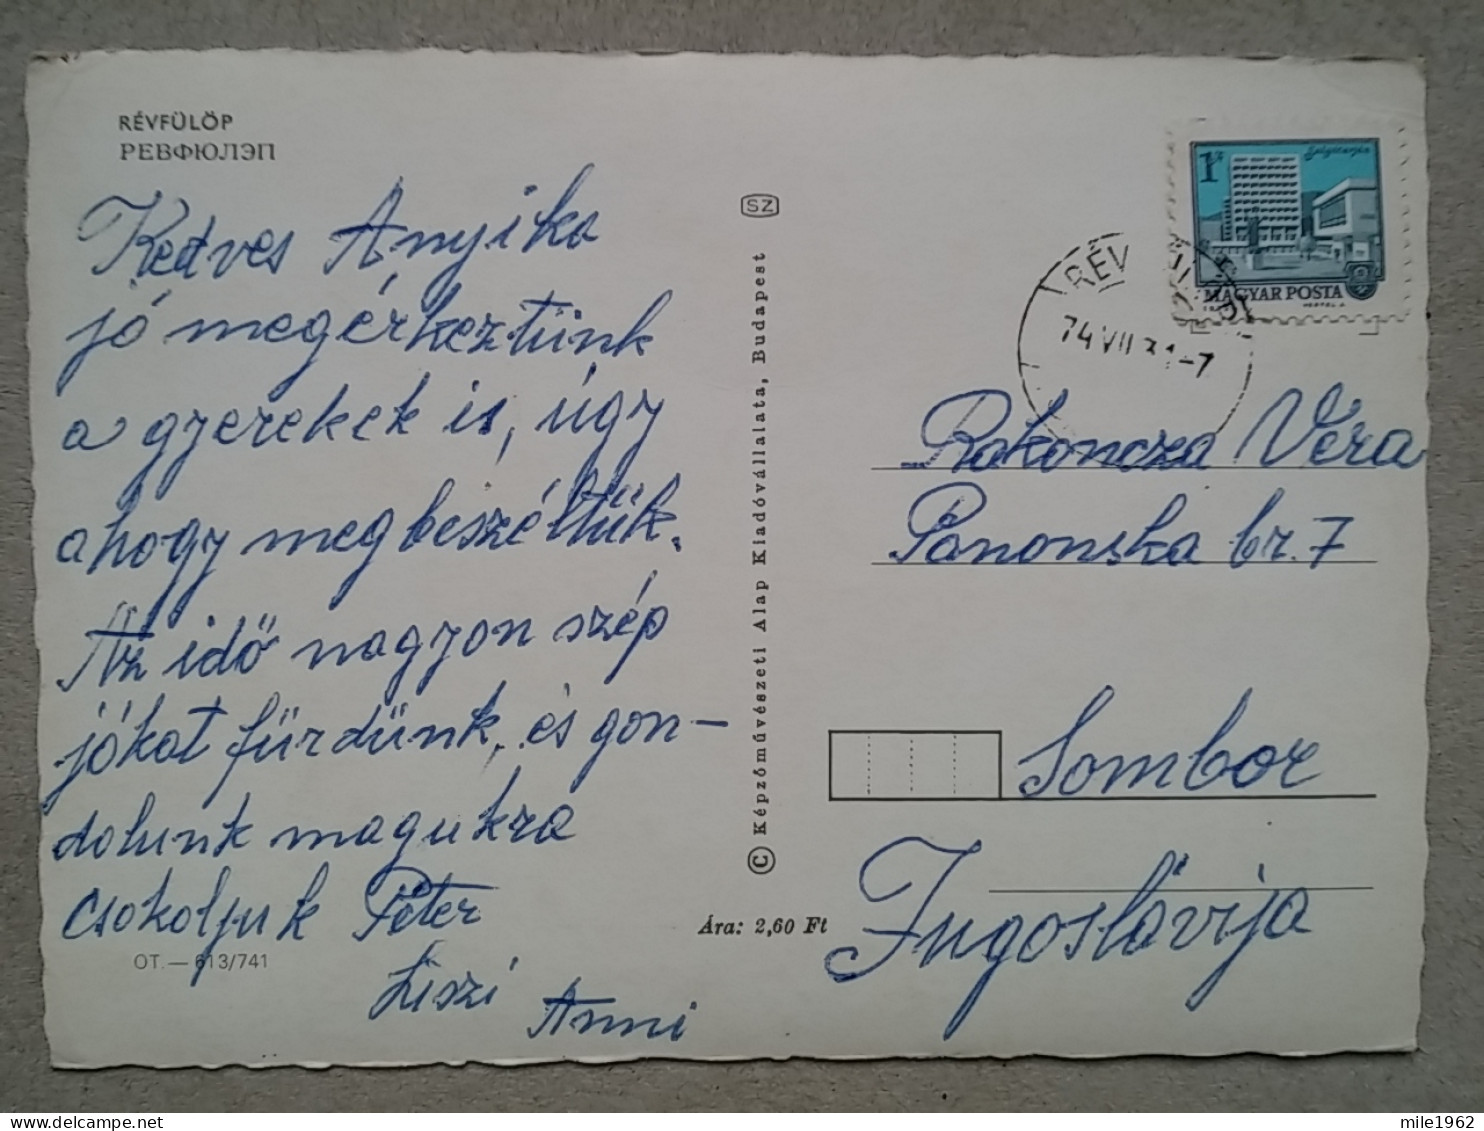 RÉVFÜLÖP
РЕВФЮЛЭП
Kedves Anyika
jó megérkeztünk
a gyerekek is, úgy
ahogy megbeszéltük.
Az idő nagyon szép
jókat fürdünk, és gon-
dolunk magukra
csokoljuk Péter
Liszi
Anni
OT. — 613/741
SZ
© Képzőművészeti Alap Kiadóvállalata, Budapest
Ára: 2,60 Ft
1 Ft
Salgótarján
MAGYAR POSTA
RÉV
74 VII 31-7
Rakoncza Vera
Panonska br. 7
Sombor
Jugoslávija
mile1962